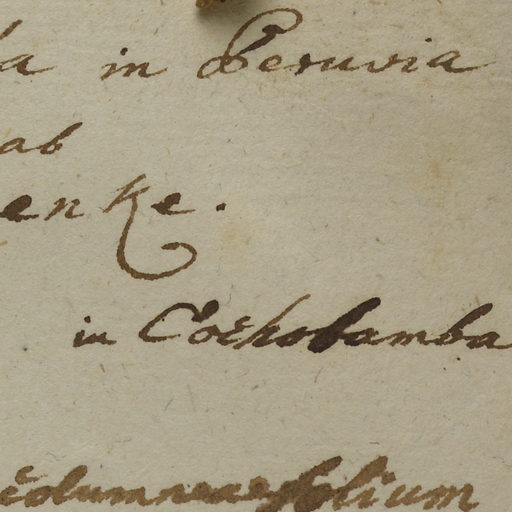 a in Peruvia
ab
enke.
in Cochobamba
columneaefolium